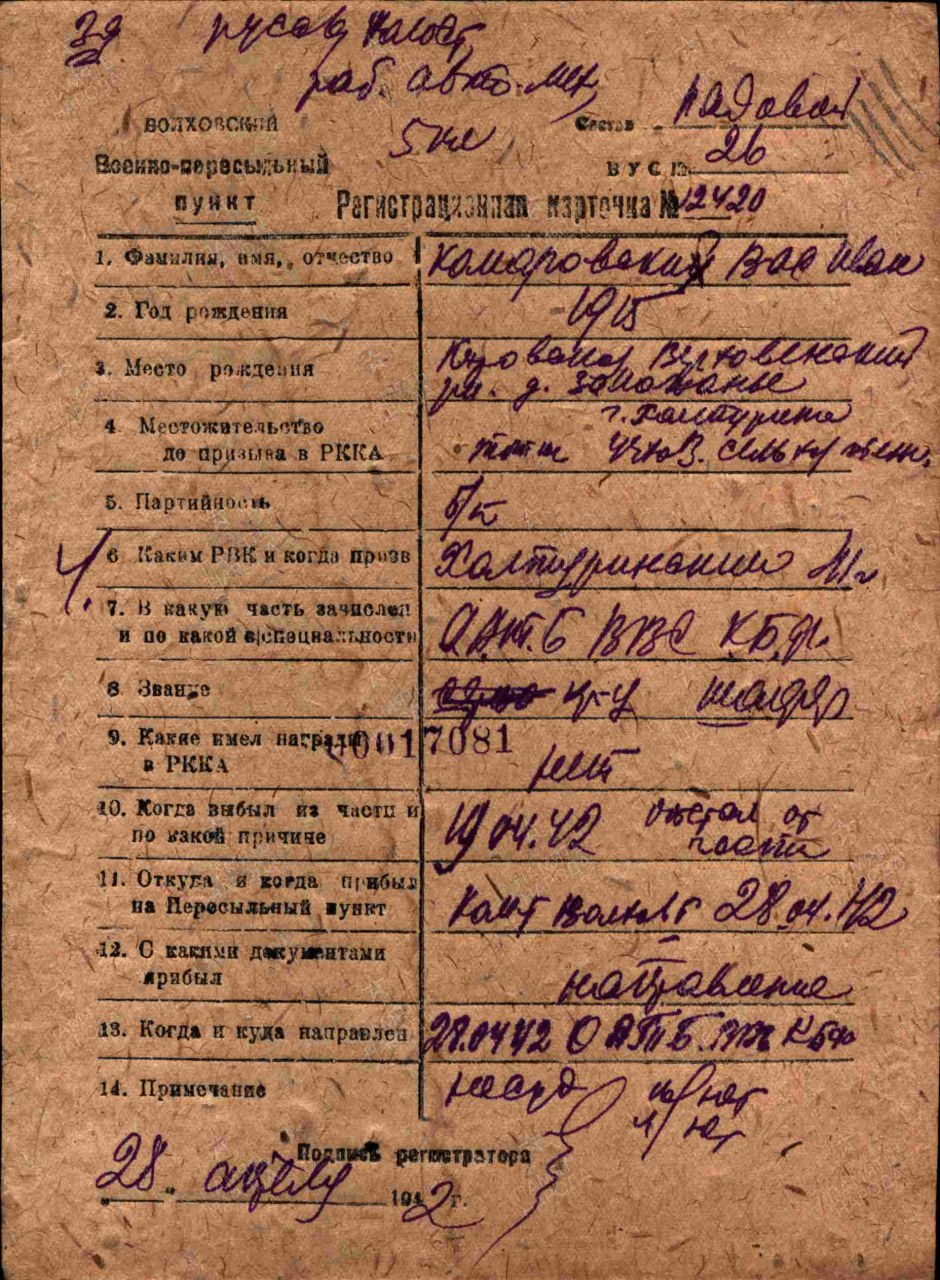 русск холост
раб. авто. мех
5 кл
ВОЛХОВСКИЙ
Военно-пересыльный
пункт
Состав рядовой
ВУС № 26
Регистрационная карточка № 12420
1. Фамилия, имя, отчество Комаровский Вас Иван
2. Год рождения 1915
3. Место рождения Кировская Верховенский
рн. д.
4. Местожительство г. Халтурина
до призыва в РККА
5. Партийность б/п
6 Каким РВК и когда призв Халтуринский 41г
7. В какую часть зачислен
и по какой в/специальности О.А.Т.Б ВВС К.Б.Ф.
8 Звание кр-ц шофер
9. Какие имел награды
в РККА нет
00017081
10. Когда выбыл из части и
по какой причине 19 04.42 отстал от
части
11. Откуда и когда прибыл
на Пересыльный пункт Комт Волховст 28.04.42
12. С какими документами
прибыл направление
13. Когда и куда направлен 28.04 42 ОАТБ. ВВС КБФ
14. Примечание нет
нет
Подпись регистратора
28 апреля 1942 г.